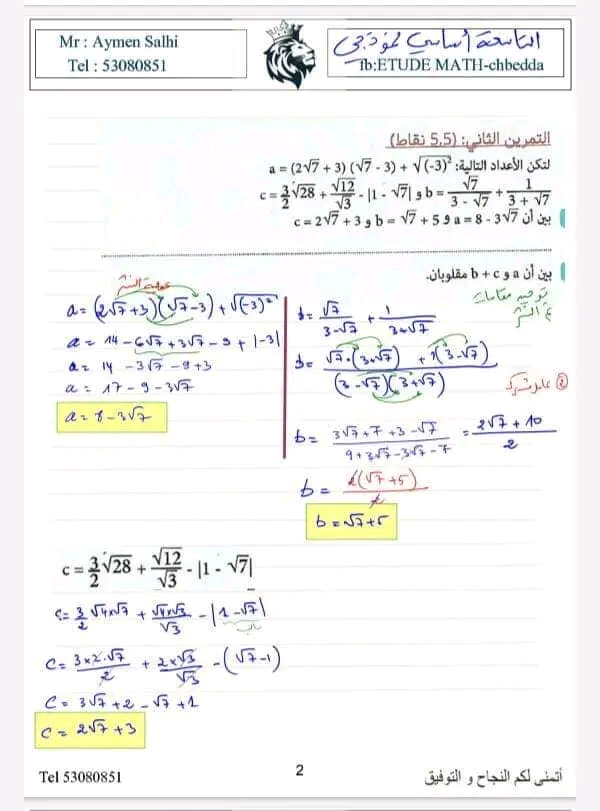 Mr : Aymen Salhi
Tel : 53080851
التاسعة أساسي نموذجي
fb:ETUDE MATH-chbedda
التمرين الثاني: (5,5 نقاط)
لتكن الأعداد التالية: a = (2√7 + 3) (√7 - 3) + √(-3)²
b = √7/(3 - √7) + 1/(3 + √7) و c = 3/2 √28 + √12/√3 - |1 - √7|
بين أن a = 8 - 3√7 و b = √7 + 5 و c = 2√7 + 3
بين أن a و b + c مقلوبان.
عملية النشر
a = (2√7+3)(√7-3) + √(-3)²
a = 14 - 6√7 + 3√7 - 9 + |-3|
a = 14 - 3√7 - 9 + 3
a = 17 - 9 - 3√7
a = 8 - 3√7
توحيد مقامات
ع النشر
b = √7/(3-√7) + 1/(3+√7)
b = (√7·(3+√7) + 1(3-√7))/((3-√7)(3+√7))
② عامل مشترك
b = (3√7+7+3-√7)/(9+3√7-3√7-7) = (2√7+10)/2
b = 2(√7+5)/2
b = √7+5
c = 3/2 √28 + √12/√3 - |1 - √7|
c = 3/2 √4×√7 + √4×√3/√3 - |1-√7|
سالب
c = 3×2·√7/2 + 2×√3/√3 - (√7-1)
c = 3√7 + 2 - √7 + 1
c = 2√7 + 3
Tel 53080851
2
أتمنى لكم النجاح و التوفيق